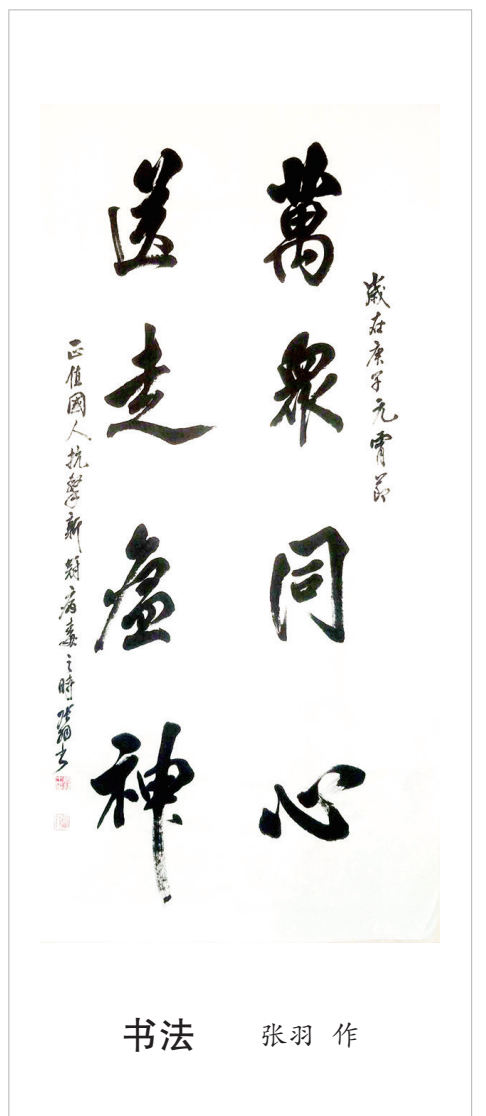 歲在庚子元宵節
萬眾同心
送走瘟神
正值國人抗擊新冠病毒之時張羽書
书法 张羽 作